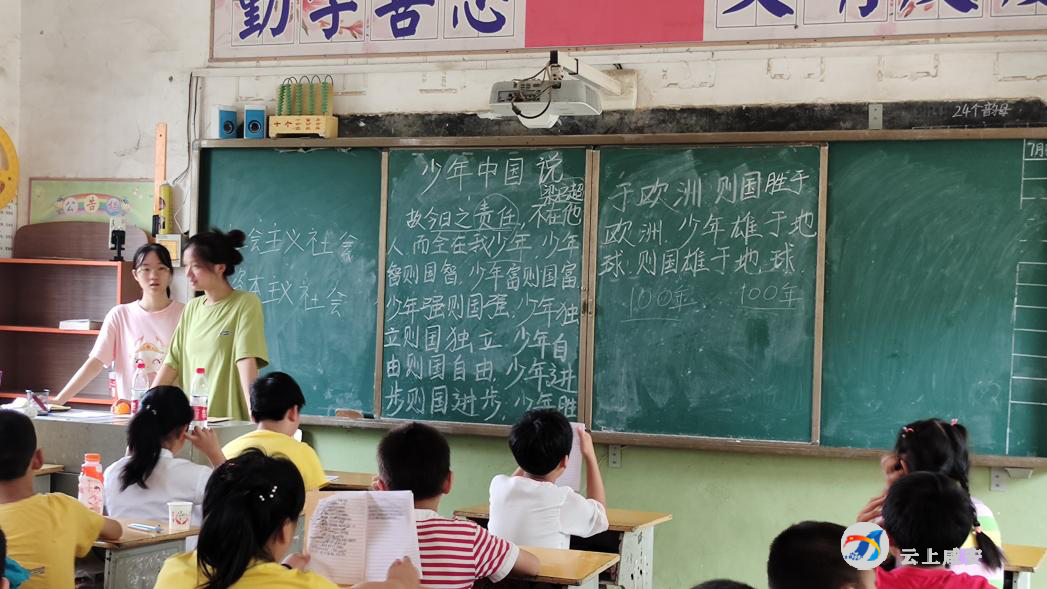 勤学善思
24个韵母
公告栏
7月
会主义社会
本主义社会
少年中国说
梁启超
故今日之责任,不在他
人,而全在我少年.少年
智则国智,少年富则国富
少年强则国强,少年独
立则国独立,少年自
由则国自由,少年进
步则国进步,少年胜
于欧洲,则国胜于
欧洲,少年雄于地
球,则国雄于地球.
100年 100年
云上咸宁